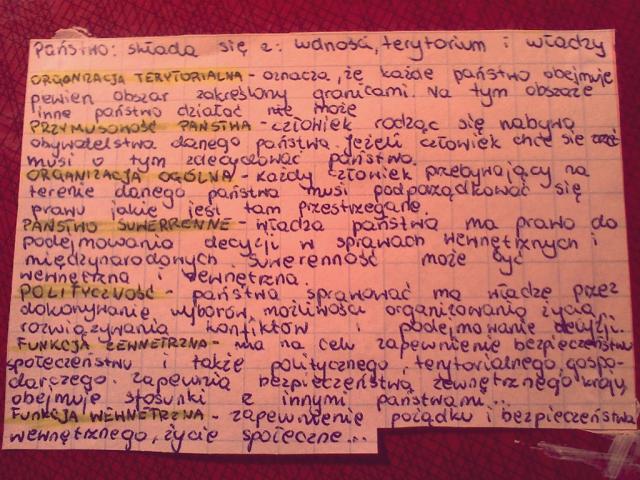 Państwo: składa się z: ludności, terytorium i władzy
ORGANIZACJA TERYTORIALNA - oznacza, że każde państwo obejmuje
pewien obszar zakreślony granicami. Na tym obszarze
inne państwo działać nie może
PRZYMUSOWOŚĆ PAŃSTWA - człowiek rodząc się nabywa
obywatelstwa danego państwa. jeżeli człowiek chce się zrzec
musi o tym zdecydować państwo.
ORGANIZACJA OGÓLNA - każdy człowiek przebywający na
terenie danego państwa musi podporządkować się
prawu jakie jest tam przestrzegane.
PAŃSTWO SUWERRENNE - władza państwa ma prawo do
podejmowania decyzji w sprawach wewnętrznych i
międzynarodowych. Suwerenność może być
wewnętrzna i zewnętrzna.
POLITYCZNOŚĆ - państwa sprawować ma władzę przez
dokonywanie wyborów, możliwości organizowania życia,
rozwiązywania konfliktów i podejmowanie decyzji.
FUNKCJA ZEWNĘTRZNA - ma na celu zapewnienie bezpieczeństwa
społeczeństwu i także politycznego, terytorialnego, gospo-
darczego. zapewnia bezpieczeństwa zewnętrznego kraju,
obejmuje stosunki z innymi państwami...
FUNKCJA WEWNĘTRZNA - zapewnienie pożądku i bezpieczeństwa
wewnętrznego, życie społeczne...